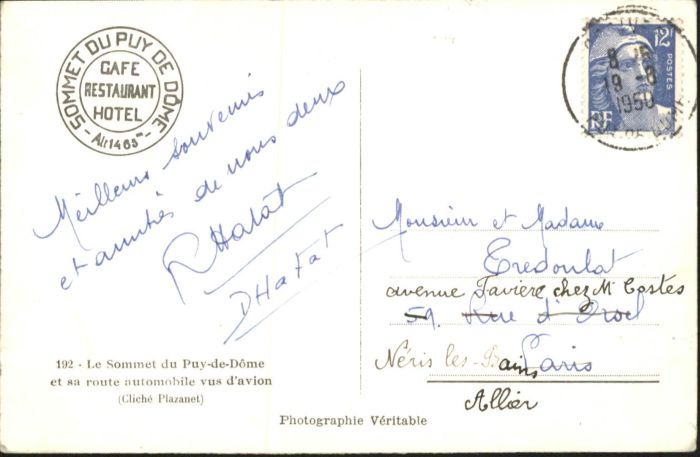 SOMMET DU PUY DE DÔME
CAFE
RESTAURANT
HOTEL
- Alt 1465m -
12F
POSTES
RF
8
19 - 8
1950
Meilleurs souvenirs
et amitiés de nous deux
RHatat
DHatat
Monsieur et Madame
Tredoulat
avenue Favière chez Mr Costes
59. Rue d'
Néris les-Bains Paris
Allier
192 - Le Sommet du Puy-de-Dôme
et sa route automobile vus d'avion
(Cliché Plazanet)
Photographie Véritable